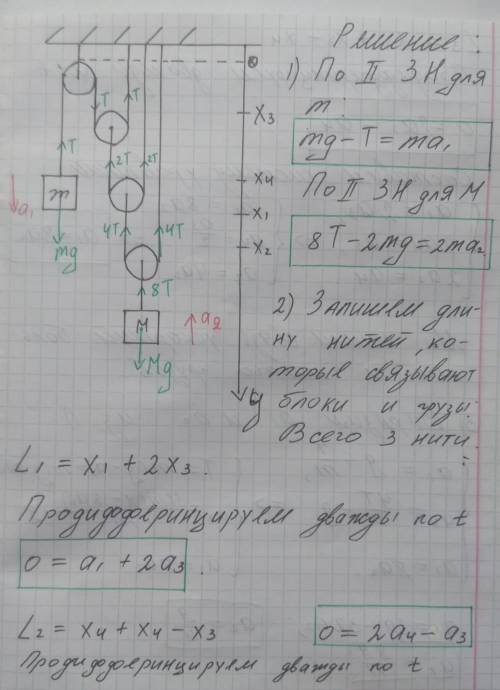 Решение:
1) По II ЗН для
m:
mg - T = ma₁
По II ЗН для M
8T - 2mg = 2ma₂
2) Запишем дли-
ну нитей, ко-
торые связывают
блоки и грузы.
Всего 3 нити:
0
X₃
X₄
X₁
X₂
y
T
T
T
2T
2T
4T
4T
8T
m
a₁
mg
M
a₂
Mg
L₁ = X₁ + 2X₃.
Продидфдеринцируем дважды по t
0 = a₁ + 2a₃.
L₂ = X₄ + X₄ - X₃
0 = 2a₄ - a₃
Продидфдеринцируем дважды по t